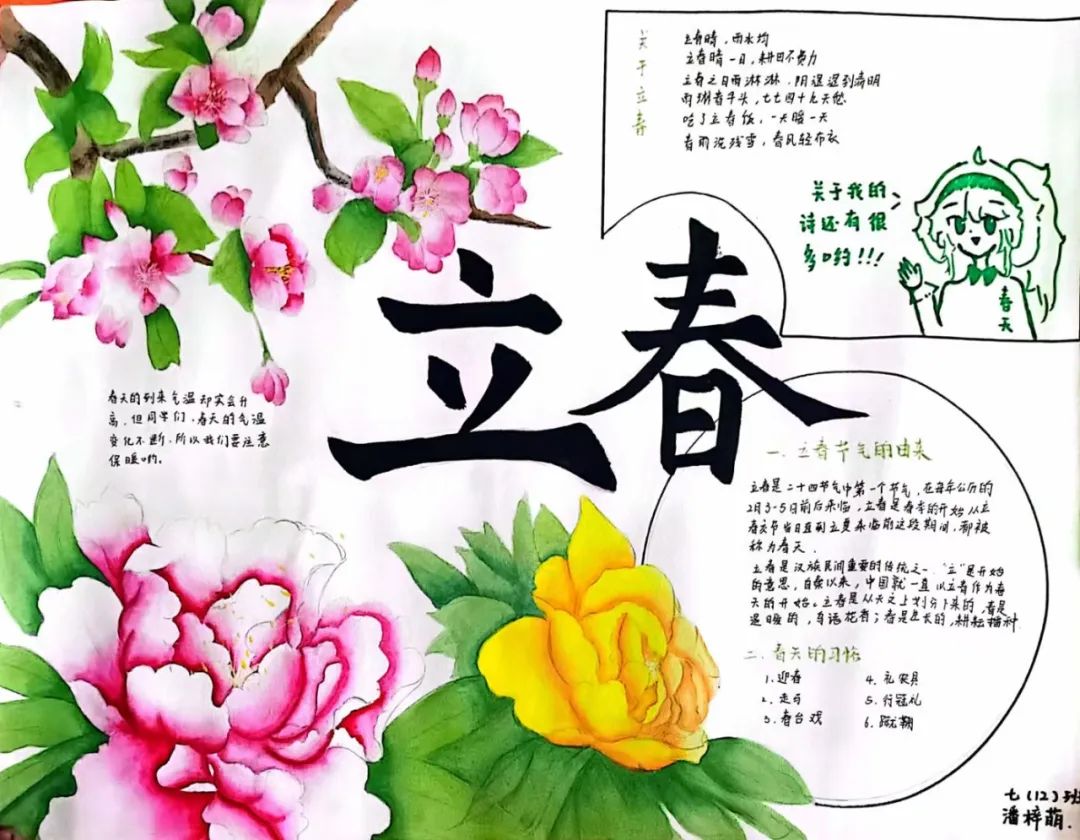 关于立春
立春晴,雨水均
立春晴一日,耕田不费力
立春之日雨淋淋,阴阴湿湿到清明
雨淋春牛头,七七四十九天愁
吃了立春饭,一天暖一天
春雨洗残雪,春风轻布衣
关于我的
诗还有很
多哟!!!
春天
立春
春天的到来气温却实会升
高,但同学们,春天的气温
变化不断,所以我们要注意
保暖哟。
一.立春节气的由来
立春是二十四节气中第一个节气,在每年公历的
2月3-5日前后来临,立春是春季的开始从立
春交节当日直到立夏来临前这段期间,都被
称为春天.
立春是汉族民间重要的传统之一."立"是开始
的意思,自秦以来,中国就一直以立春作为春
天的开始。立春是从天文上划分下来的,春是
温暖的,鸟语花香;春是生长的,耕耘播种
二.春天的习俗
1.迎春
2.走
3.春台戏
4.礼农具
5.行冠礼
6.蹴鞠
七(12)班
潘梓萌.